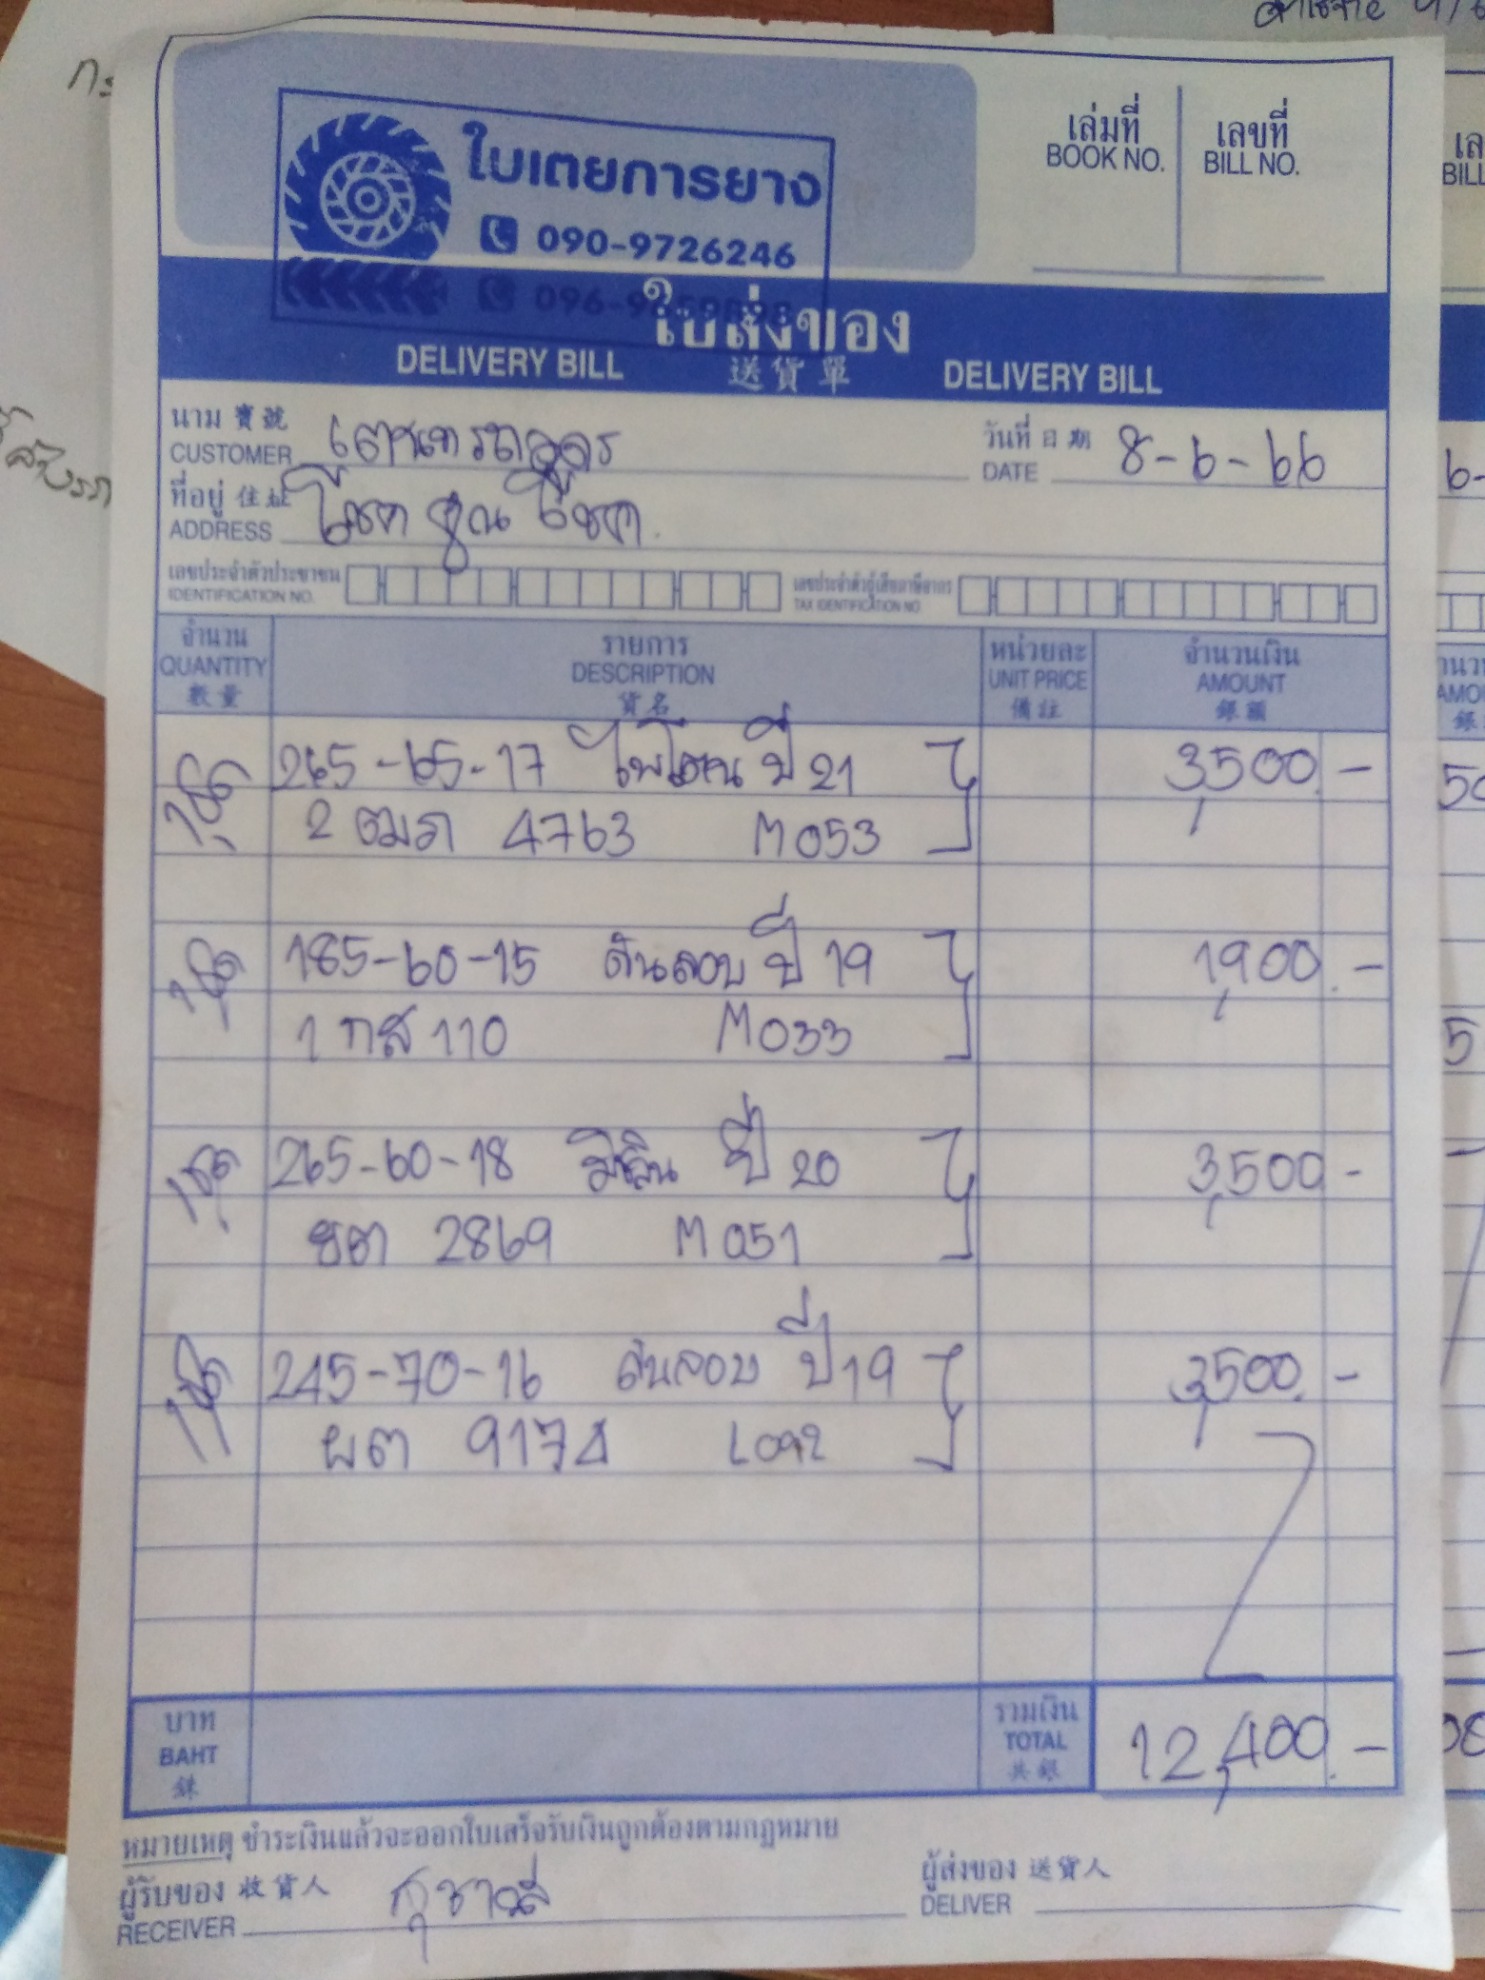 ใบเตยการยาง
090-9726246
เล่มที่
BOOK NO.
เลขที่
BILL NO.
ใบส่งของ
DELIVERY BILL 送貨單 DELIVERY BILL
นาม 寶號
CUSTOMER
วันที่ 日期
DATE 8-6-66
ที่อยู่ 住址
ADDRESS โชค คูณ โชค
เลขประจำตัวประชาชน
IDENTIFICATION NO.
เลขประจำตัวผู้เสียภาษีอากร
TAX IDENTIFICATION NO
จำนวน รายการ หน่วยละ จำนวนเงิน
QUANTITY DESCRIPTION UNIT PRICE AMOUNT
數量 貨名 備註 銀額
1ชุด 265-65-17 ปี 21 3,500.-
2 ฒมภ 4763 M053
1ชุด 185-60-15 ดันลอบ ปี 19 1,900.-
1 กส 110 M033
1ชุด 265-60-18 มิชลิน ปี 20 3,500-
ยต 2869 M051
1ชุด 245-70-16 ดันลอบ ปี 19 3,500.-
ผต 9174 L092
บาท
BAHT
銖
รวมเงิน
TOTAL
共銀
12,400.-
หมายเหตุ ชำระเงินแล้วจะออกใบเสร็จรับเงินถูกต้องตามกฎหมาย
ผู้รับของ 收貨人
RECEIVER สุชาวลี
ผู้ส่งของ 送貨人
DELIVER